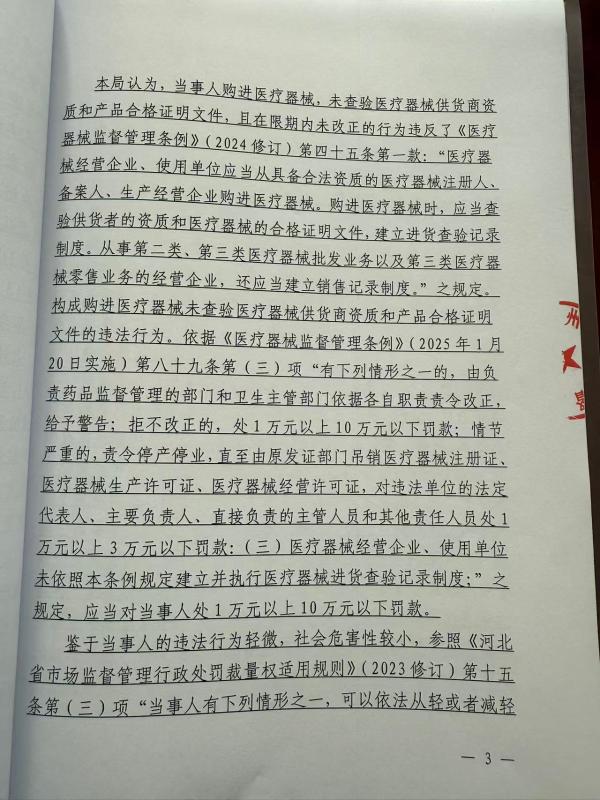 本局认为，当事人购进医疗器械，未查验医疗器械供货商资
质和产品合格证明文件，且在限期内未改正的行为违反了《医疗
器械监督管理条例》（2024修订）第四十五条第一款：“医疗器
械经营企业、使用单位应当从具备合法资质的医疗器械注册人、
备案人、生产经营企业购进医疗器械。购进医疗器械时，应当查
验供货者的资质和医疗器械的合格证明文件，建立进货查验记录
制度。从事第二类、第三类医疗器械批发业务以及第三类医疗器
械零售业务的经营企业，还应当建立销售记录制度。”之规定。
构成购进医疗器械未查验医疗器械供货商资质和产品合格证明
文件的违法行为。依据《医疗器械监督管理条例》（2025年1月
20日实施）第八十九条第（三）项“有下列情形之一的，由负
责药品监督管理的部门和卫生主管部门依据各自职责责令改正，
给予警告；拒不改正的，处1万元以上10万元以下罚款；情节
严重的，责令停产停业，直至由原发证部门吊销医疗器械注册证、
医疗器械生产许可证、医疗器械经营许可证，对违法单位的法定
代表人、主要负责人、直接负责的主管人员和其他责任人员处1
万元以上3万元以下罚款：（三）医疗器械经营企业、使用单位
未依照本条例规定建立并执行医疗器械进货查验记录制度；”之
规定，应当对当事人处1万元以上10万元以下罚款。
鉴于当事人的违法行为轻微，社会危害性较小，参照《河北
省市场监督管理行政处罚裁量权适用规则》（2023修订）第十五
条第（三）项“当事人有下列情形之一，可以依法从轻或者减轻
— 3 —